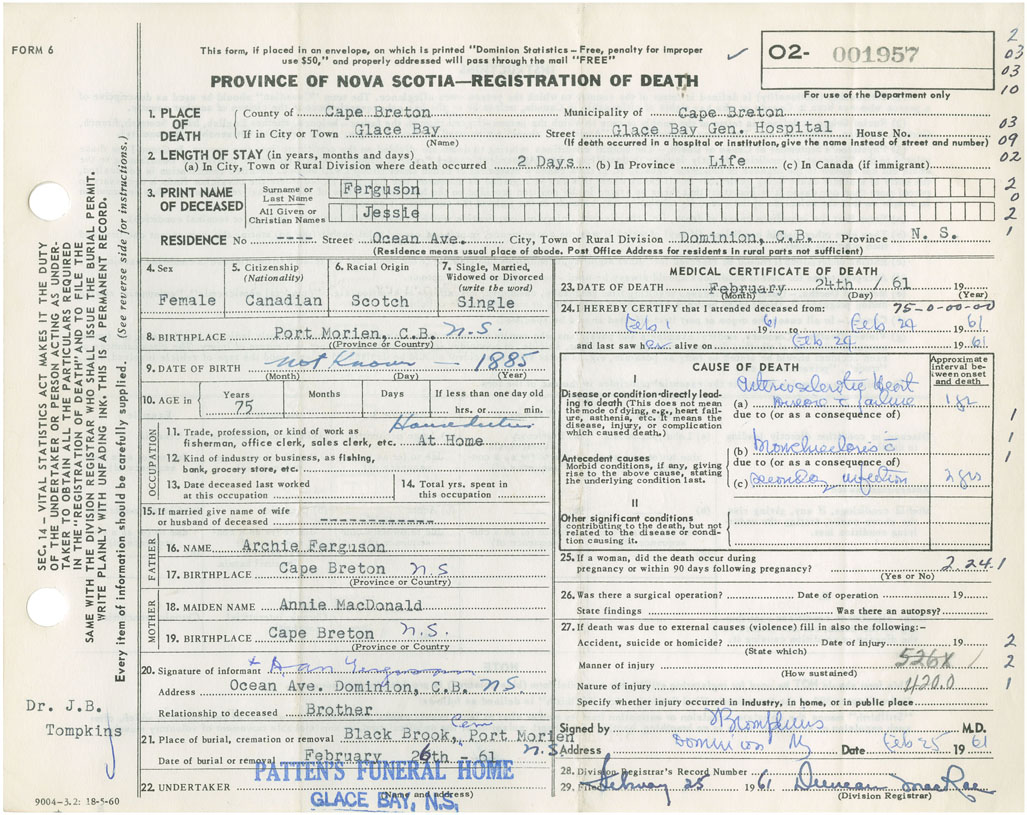 FORM 6
This form, if placed in an envelope, on which is printed "Dominion Statistics – Free, penalty for improper
use $50," and properly addressed will pass through the mail "FREE"
PROVINCE OF NOVA SCOTIA—REGISTRATION OF DEATH
✓ O2- 001957
For use of the Department only
2
03
03
10
03
09
02
2
0
2
1
SEC. 14 – VITAL STATISTICS ACT MAKES IT THE DUTY
OF THE UNDERTAKER OR PERSON ACTING AS UNDER-
TAKER TO OBTAIN ALL THE PARTICULARS REQUIRED
IN THE "REGISTRATION OF DEATH" AND TO FILE THE
SAME WITH THE DIVISION REGISTRAR WHO SHALL ISSUE THE BURIAL PERMIT.
WRITE PLAINLY WITH UNFADING INK. THIS IS A PERMANENT RECORD.
Every item of information should be carefully supplied. (See reverse side for instructions.)
1. PLACE OF DEATH
County of Cape Breton Municipality of Cape Breton
If in City or Town Glace Bay Street Glace Bay Gen. Hospital House No.
(Name) (If death occurred in a hospital or institution, give the name instead of street and number)
2. LENGTH OF STAY (in years, months and days)
(a) In City, Town or Rural Division where death occurred 2 Days (b) In Province Life (c) In Canada (if immigrant)
3. PRINT NAME OF DECEASED
Surname or Last Name Ferguson
All Given or Christian Names Jessie
RESIDENCE No ---- Street Ocean Ave. City, Town or Rural Division Dominion, C.B. Province N. S.
(Residence means usual place of abode. Post Office Address for residents in rural parts not sufficient)
4. Sex
Female
5. Citizenship (Nationality)
Canadian
6. Racial Origin
Scotch
7. Single, Married, Widowed or Divorced (write the word)
Single
8. BIRTHPLACE Port Morien, C.B. N.S.
(Province or Country)
9. DATE OF BIRTH not Known — 1885
(Month) (Day) (Year)
10. AGE in Years Months Days If less than one day old
75 hrs. or min.
OCCUPATION
11. Trade, profession, or kind of work as Houseduties
fisherman, office clerk, sales clerk, etc. At Home
12. Kind of industry or business, as fishing,
bank, grocery store, etc.
13. Date deceased last worked at this occupation
14. Total yrs. spent in this occupation
15. If married give name of wife
or husband of deceased --------------
FATHER
16. NAME Archie Ferguson
17. BIRTHPLACE Cape Breton N.S
(Province or Country)
MOTHER
18. MAIDEN NAME Annie MacDonald
19. BIRTHPLACE Cape Breton N.S.
(Province or Country)
20. Signature of informant + Dan Ferguson
Address Ocean Ave. Dominion, C.B. NS.
Relationship to deceased Brother
21. Place of burial, cremation or removal Black Brook, Cem Port Morien
Date of burial or removal February 26th - 61 n.S.
22. UNDERTAKER PATTEN'S FUNERAL HOME
(Name and address)
GLACE BAY, N.S.
Dr. J.B.
Tompkins
9004-3.2: 18-5-60
MEDICAL CERTIFICATE OF DEATH
23. DATE OF DEATH February 24th / 61 19
(Month) (Day) (Year)
24. I HEREBY CERTIFY that I attended deceased from: 75-0-00-00
Feb 1 1961 to Feb 24 1961
and last saw her alive on Feb 24 1961
CAUSE OF DEATH
Approximate interval between onset and death
I
Disease or condition directly leading to death (This does not mean the mode of dying, e.g., heart failure, asthenia, etc. It means the disease, injury, or complication which caused death.)
Arteriosclerotic Heart
(a) Disease + failure 1 yr
due to (or as a consequence of)
Antecedent causes
Morbid conditions, if any, giving rise to the above cause, stating the underlying condition last.
(b) Bronchiectasis c̄
due to (or as a consequence of)
(c) secondary infection 2 yrs
II
Other significant conditions
contributing to the death, but not related to the disease or condition causing it.
1
1
1
25. If a woman, did the death occur during
pregnancy or within 90 days following pregnancy? 2.24.1
(Yes or No)
26. Was there a surgical operation? Date of operation 19
State findings Was there an autopsy?
27. If death was due to external causes (violence) fill in also the following:–
Accident, suicide or homicide? Date of injury 19 2
(State which)
Manner of injury 526X / 2
(How sustained)
Nature of injury 420.0 1
Specify whether injury occurred in industry, in home, or in public place
Signed by M.D.
Address Dominion Date Feb 25 1961
28. Division Registrar's Record Number
29. February 25 1961 Duncan MacRae
(Division Registrar)